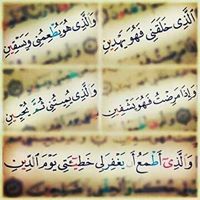 ٱلَّذِى خَلَقَنِى فَهُوَ يَهْدِينِ
وَٱلَّذِى هُوَ يُطْعِمُنِى وَيَسْقِينِ
وَإِذَا مَرِضْتُ فَهُوَ يَشْفِينِ
وَٱلَّذِى يُمِيتُنِى ثُمَّ يُحْيِينِ
وَٱلَّذِىٓ أَطْمَعُ أَن يَغْفِرَ لِى خَطِيٓـَٔتِى يَوْمَ ٱلدِّينِ